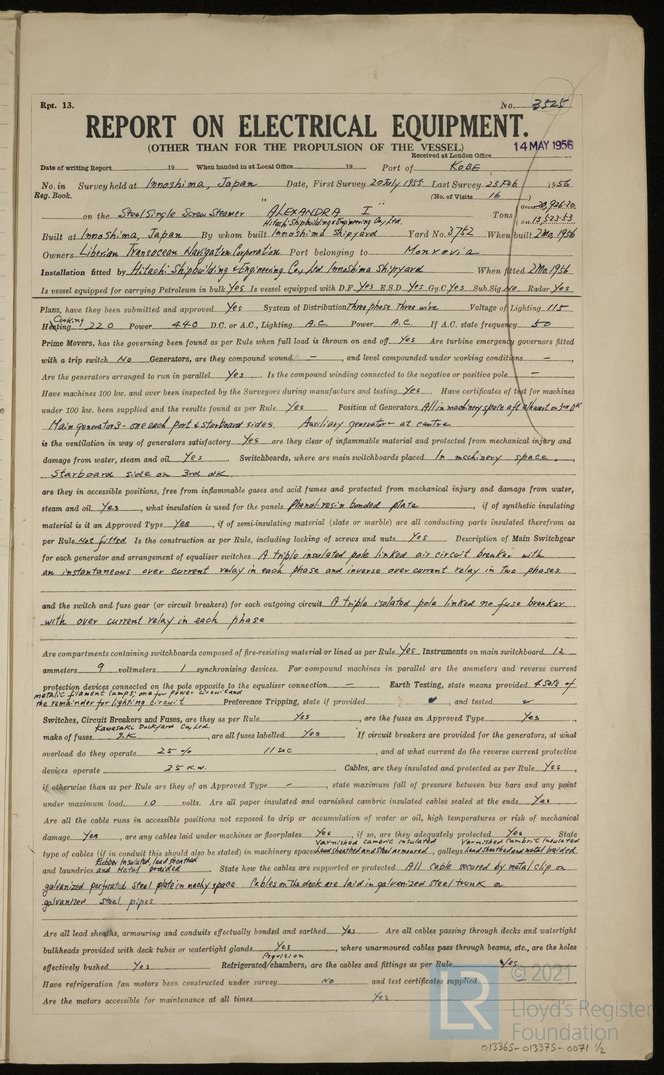 Rpt. 13. No. 3525
REPORT ON ELECTRICAL EQUIPMENT.
(OTHER THAN FOR THE PROPULSION OF THE VESSEL) 14 MAY 1956
Received at London Office
Date of writing Report 19 When handed in at Local Office 19 Port of KOBE
No. in Reg. Book. Survey held at Innoshima, Japan Date, First Survey 20 July 1955 Last Survey 23 Feb 1956
(No. of Visits 16 )
on the Steel Single Screw Steamer "ALEXANDRA I" Tons Gross 20,926.20
Hitachi Shipbuilding & Engineering Co., Ltd. Net 13,523.43
Built at Innoshima, Japan By whom built Innoshima Shipyard Yard No. 3752 When built 2 Mo. 1956
Owners Liberian Transocean Navigation Corporation Port belonging to Monrovia
Installation fitted by Hitachi Shipbuilding & Engineering Co., Ltd Innoshima Shipyard When fitted 2 Mo. 1956
Is vessel equipped for carrying Petroleum in bulk Yes Is vessel equipped with D.F. Yes E.S.D. Yes Gy.C Yes Sub.Sig. No Radar Yes
Plans, have they been submitted and approved Yes System of Distribution Three phase Three wire Voltage of Lighting 115
Cooking
Heating 220 Power 440 D.C. or A.C., Lighting A.C. Power A.C. If A.C. state frequency 50
Prime Movers, has the governing been found as per Rule when full load is thrown on and off Yes Are turbine emergency governors fitted
with a trip switch No Generators, are they compound wound - , and level compounded under working conditions -
Are the generators arranged to run in parallel Yes Is the compound winding connected to the negative or positive pole -
Have machines 100 kw. and over been inspected by the Surveyors during manufacture and testing Yes Have certificates of test for machines
under 100 kw. been supplied and the results found as per Rule Yes Position of Generators All in machinery space aft on 3rd dk
Main generators - one each port & starboard sides. Auxiliary generator - at centre
is the ventilation in way of generators satisfactory Yes are they clear of inflammable material and protected from mechanical injury and
damage from water, steam and oil Yes Switchboards, where are main switchboards placed In machinery space,
Starboard side on 3rd dk
are they in accessible positions, free from inflammable gases and acid fumes and protected from mechanical injury and damage from water,
steam and oil Yes , what insulation is used for the panels Phenol-resin bonded plate , if of synthetic insulating
material is it an Approved Type Yes , if of semi-insulating material (slate or marble) are all conducting parts insulated therefrom as
per Rule Not fitted Is the construction as per Rule, including locking of screws and nuts Yes Description of Main Switchgear
for each generator and arrangement of equaliser switches A triple insulated pole linked air circuit breaker with
an instantaneous over current relay in each phase and inverse over current relay in two phases
and the switch and fuse gear (or circuit breakers) for each outgoing circuit A triple isolated pole linked no fuse breaker
with over current relay in each phase
Are compartments containing switchboards composed of fire-resisting material or lined as per Rule Yes Instruments on main switchboard 12
ammeters 9 voltmeters 1 synchronizing devices. For compound machines in parallel are the ammeters and reverse current
protection devices connected on the pole opposite to the equaliser connection - Earth Testing, state means provided 4 sets of
metalic filament lamps; one for power circuit and
the remainder for lighting circuit Preference Tripping, state if provided , and tested
Switches, Circuit Breakers and Fuses, are they as per Rule Yes , are the fuses an Approved Type Yes
Kawasaki Dockyard Co., Ltd.
make of fuses D.K. are all fuses labelled Yes If circuit breakers are provided for the generators, at what
overload do they operate 25 % 11 sec , and at what current do the reverse current protective
devices operate 25 K.W. Cables, are they insulated and protected as per Rule Yes ,
if otherwise than as per Rule are they of an Approved Type - , state maximum fall of pressure between bus bars and any point
under maximum load 10 volts. Are all paper insulated and varnished cambric insulated cables sealed at the ends Yes
Are all the cable runs in accessible positions not exposed to drip or accumulation of water or oil, high temperatures or risk of mechanical
damage Yes , are any cables laid under machines or floorplates Yes , if so, are they adequately protected Yes State
Varnished Cambric insulated Varnished Cambric insulated
type of cables (if in conduit this should also be stated) in machinery spaces lead sheathed and steel armoured , galleys lead sheathed and metal braided
Rubber Insulated, lead sheathed
and laundries and Metal braided State how the cables are supported or protected All cable secured by metal clip on
galvanized perforated steel plate in machy space Cables on the deck are laid in galvanized steel trunk or
galvanized steel pipes
Are all lead sheaths, armouring and conduits effectually bonded and earthed Yes Are all cables passing through decks and watertight
bulkheads provided with deck tubes or watertight glands Yes , where unarmoured cables pass through beams, etc., are the holes
Provision
effectively bushed Yes Refrigerated chambers, are the cables and fittings as per Rule Yes
Have refrigeration fan motors been constructed under survey No and test certificates supplied
Are the motors accessible for maintenance at all times Yes
LR © 2021
Lloyd's Register
Foundation
013365-013375-0071 1/2